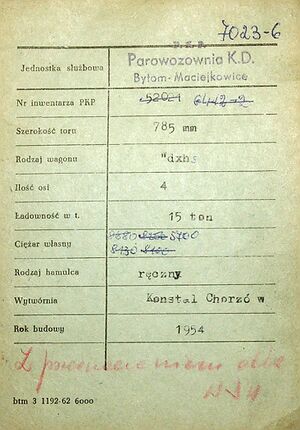 7023-6
P.K.P.
Jednostka służbowa Parowozownia K.D.
Bytom-Maciejkowice
Nr inwentarza PKP 52021 6442-2
Szerokość toru 785 mm
Rodzaj wagonu "dxhs
Ilość osi 4
Ładowność w t. 15 ton
Ciężar własny 8700
Rodzaj hamulca ręczny
Wytwórnia Konstal Chorzów
Rok budowy 1954
Z
btm 3 1192-62 6000